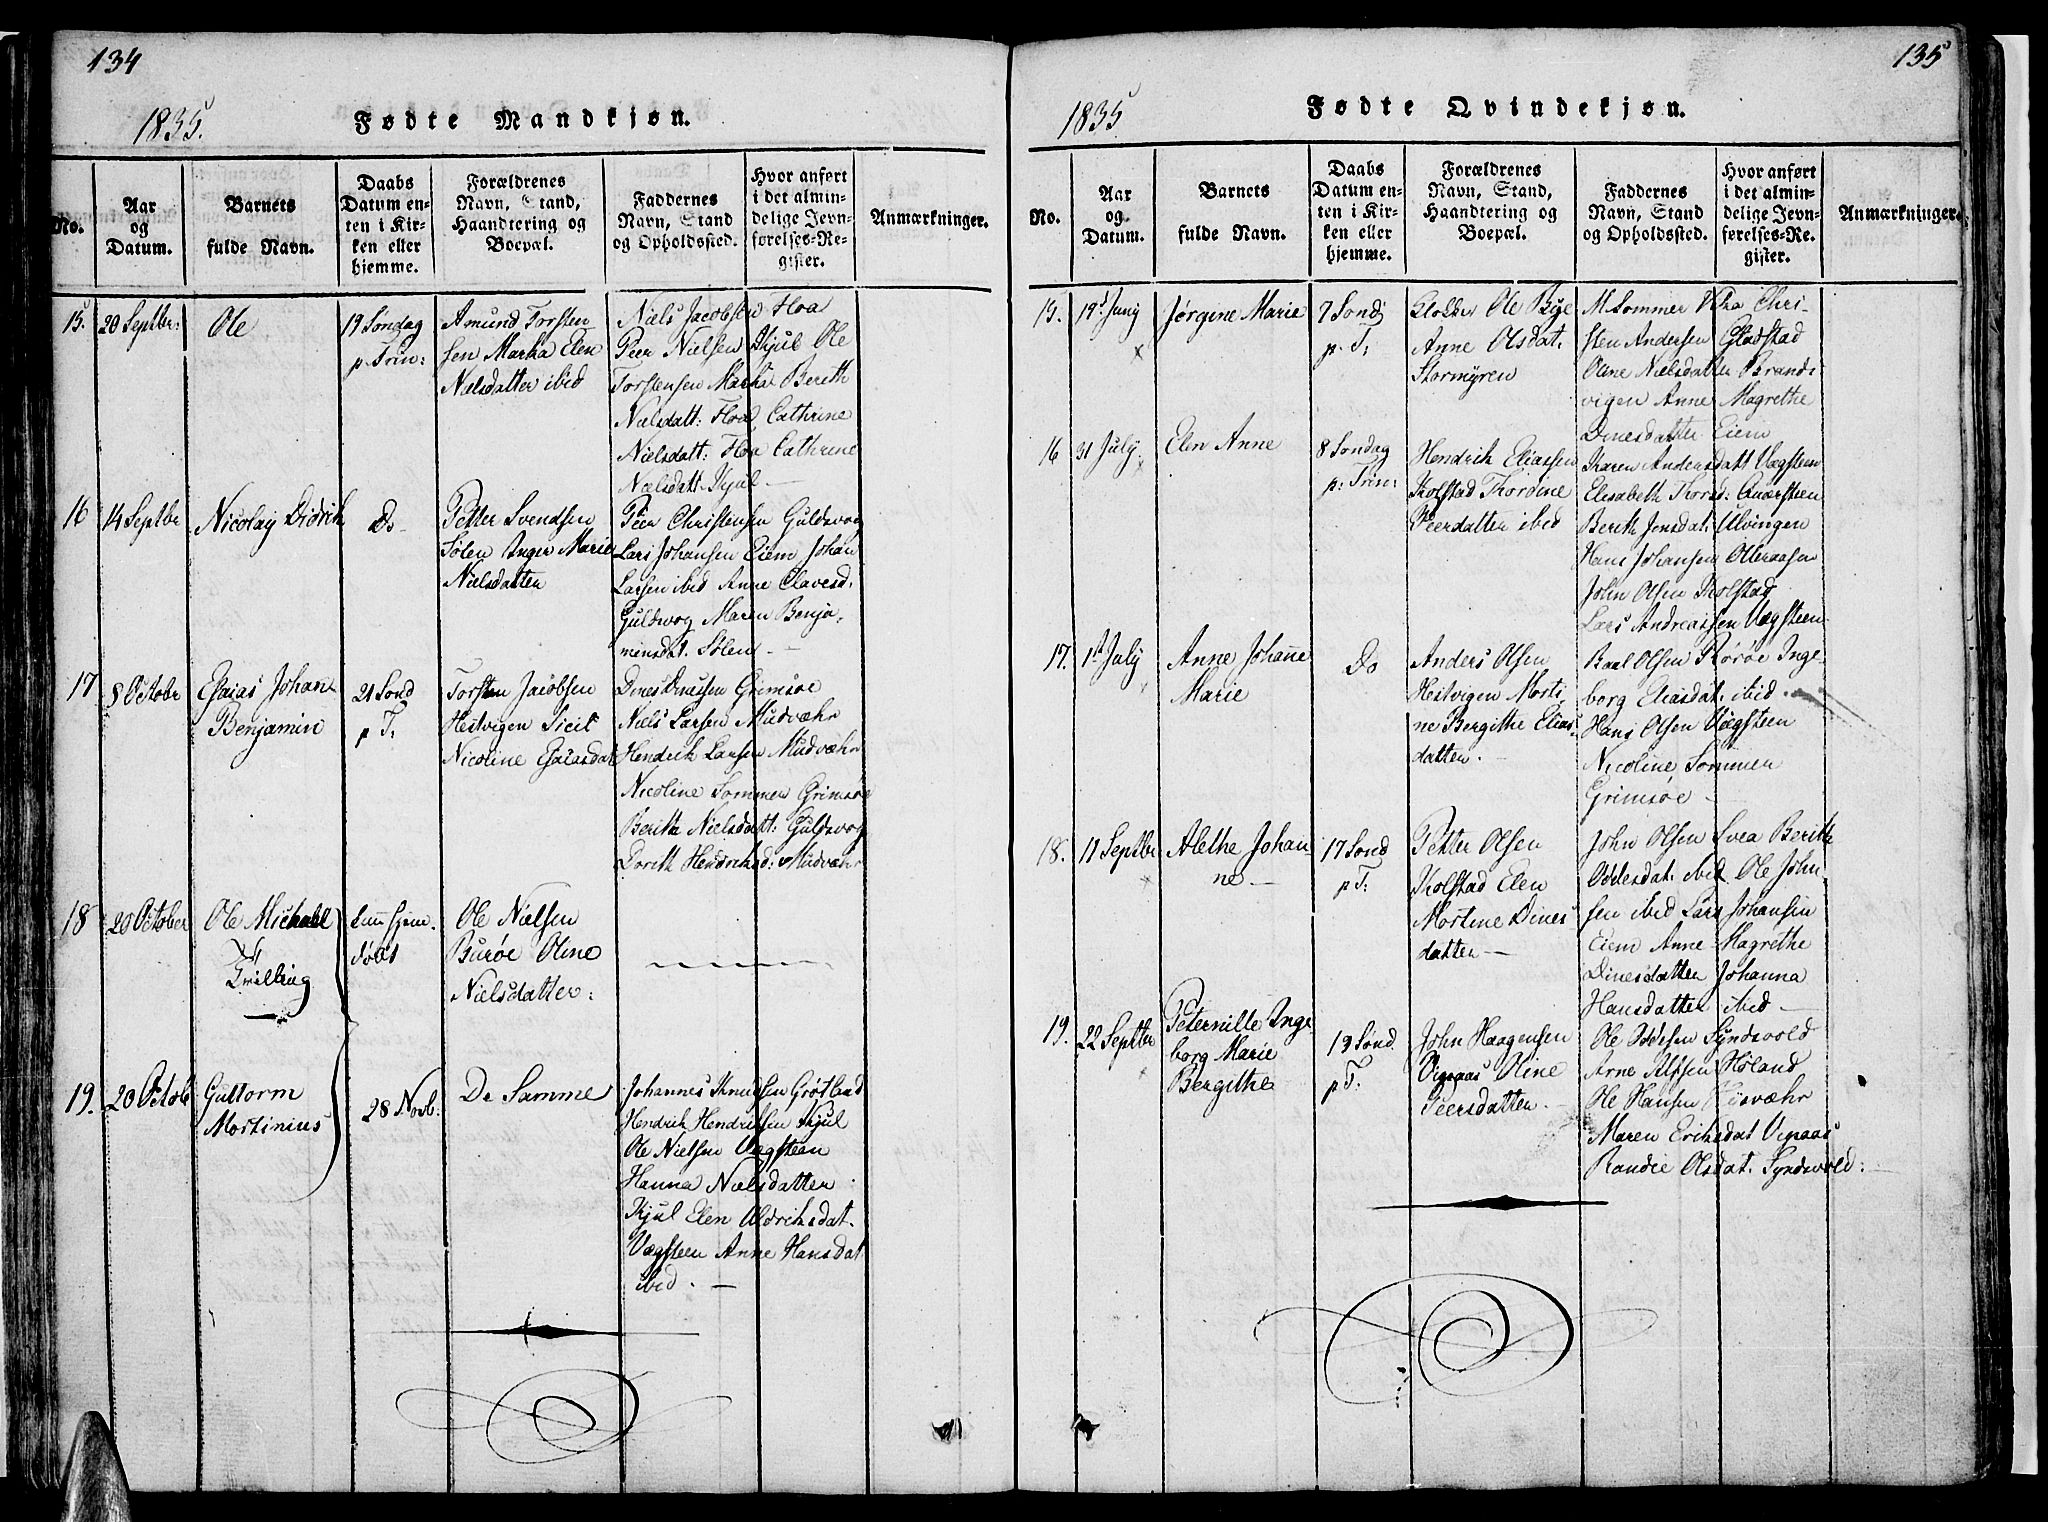 134
1835.
Fødte Mandkjøn.
No.
Aar
og
Datum.
Barnets
fulde Navn.
Daabs
Datum en-
ten i Kir-
ken eller
hjemme.
Forældrenes
Navn, Stand,
Haandtering og
Boepæl.
Faddernes
Navn, Stand
og Opholdssted.
Hvor anført
i det almin-
delige Jevn-
førelses-Re-
gister.
Anmærkninger.
15.
20 Septbr:
Ole
19 Søndag
p. Trin:
Amund Torsten
sen Marka Elen
Nielsdatter ibid
Niels Jacobsen Floa
Peer Nielsen Skjul Ole
Torstensen Marka Bereth
Nielsdatt: Floa Cathrine
Nielsdatt: Floa Cathrine
Nielsdatt. Skjul
16
14 Septbr
Nicolay Didrik
Do
Petter Svendsen
Sølen Inger Marie
Nielsdatter
Peer Christensen Guldsvog
Lars Johansen Eiem Johan
Larsen ibid Anne Olavesd.
Guldsvog Maren Benja-
minsdat. Sølen
17
8 Octobr
Esaias Johan
Benjamin
21 Sond
p T:
Torsten Jacobsen
Hestvigen Sicil
Nicoline Esaiasdat
Dines Dinesen Grimsøe
Niels Larsen Mudvæhr
Hendrik Larsen Mudvæhr
Nicoline Sommer Grimsøe
Berith Nielsdatt: Guldsvog
Dorith Hendriksd: Mudvæhr
18
20 October
Ole Michael
Tvilling
hjem.
døbt
Ole Nielsen
Burøe Oline
Nielsdatter:
19.
20 Octob
Guttorm
Mortinius
28 Novb:
De Samme
Johannes Knudsen Grøtland
Hendrik Hendriksen Skjul
Ole Nielsen Vægsteen
Hanna Nielsdatter
Skjul Elen Uldriksdat.
Vægsteen Anne Hansdat
ibid.
135
1835
Fødte Qvindekjøn.
No.
Aar
og
Datum.
Barnets
fulde Navn.
Daabs
Datum en-
ten i Kir-
ken eller
hjemme.
Forældrenes
Navn, Stand,
Haandtering og
Boepæl.
Faddernes
Navn, Stand
og Opholdssted.
Hvor anført
i det almin-
delige Jevn-
førelses-Re-
gister.
Anmærkninger.
15.
19d Junij
Jørgine Marie
7 Sond
p. T:
Klokker Ole Bye
Anne Olsdat.
Stormyren
M. Sommer Chri-
sten Andersen Gladstad
Oline Nielsdatter Brands
vigen Anne Magrethe
Dinesdatter Eiem
16
31 July
Elen Anne
8 Søndag
p: Trin:
Hendrik Eliassen
Kolstad Thordine
Peersdatter ibid
Karen Andersdatt Vægsteen
Elisabeth Thorsd: Qværsteen
Berith Jonsdat: Ulvingen
Hans Johansen Olleraasen
John Olsen Kolstad
Lars Andreassen Vægsteen
17.
1st July
Anne Johanne
Marie
Do
Anders Olsen
Hestvigen Morti
ne Bergithe Elias
datter.
Baal Olsen Rørøe Inge
borg Eliasdat. ibid.
Hans Olsen Vægsteen
Nicoline Sommer
Grimsøe
18.
11 Septbr
Alethe Johan
ne
17 Sond
p T:
Petter Olsen
Kolstad Elen
Mortine Dines
datter
John Olsen Svea Berith
Oddesdat. ibid Ole John
sen ibid Lars Johansen
Eiem Anne Magrethe
Dinesdatter Johanna
Hansdatter ibid
19.
22 Septbr
Peternille Inge
borg Marie
Bergithe
19 Sønd.
p T:
John Haagensen
Vigaas Oline
Peersdatter.
Ole Oddesen Syndsvold
Arne Alfsen Høland
Ole Hansen Kisvæhr
Maren Eriksdat Vigaas
Randie Olsdat. Syndsvold: